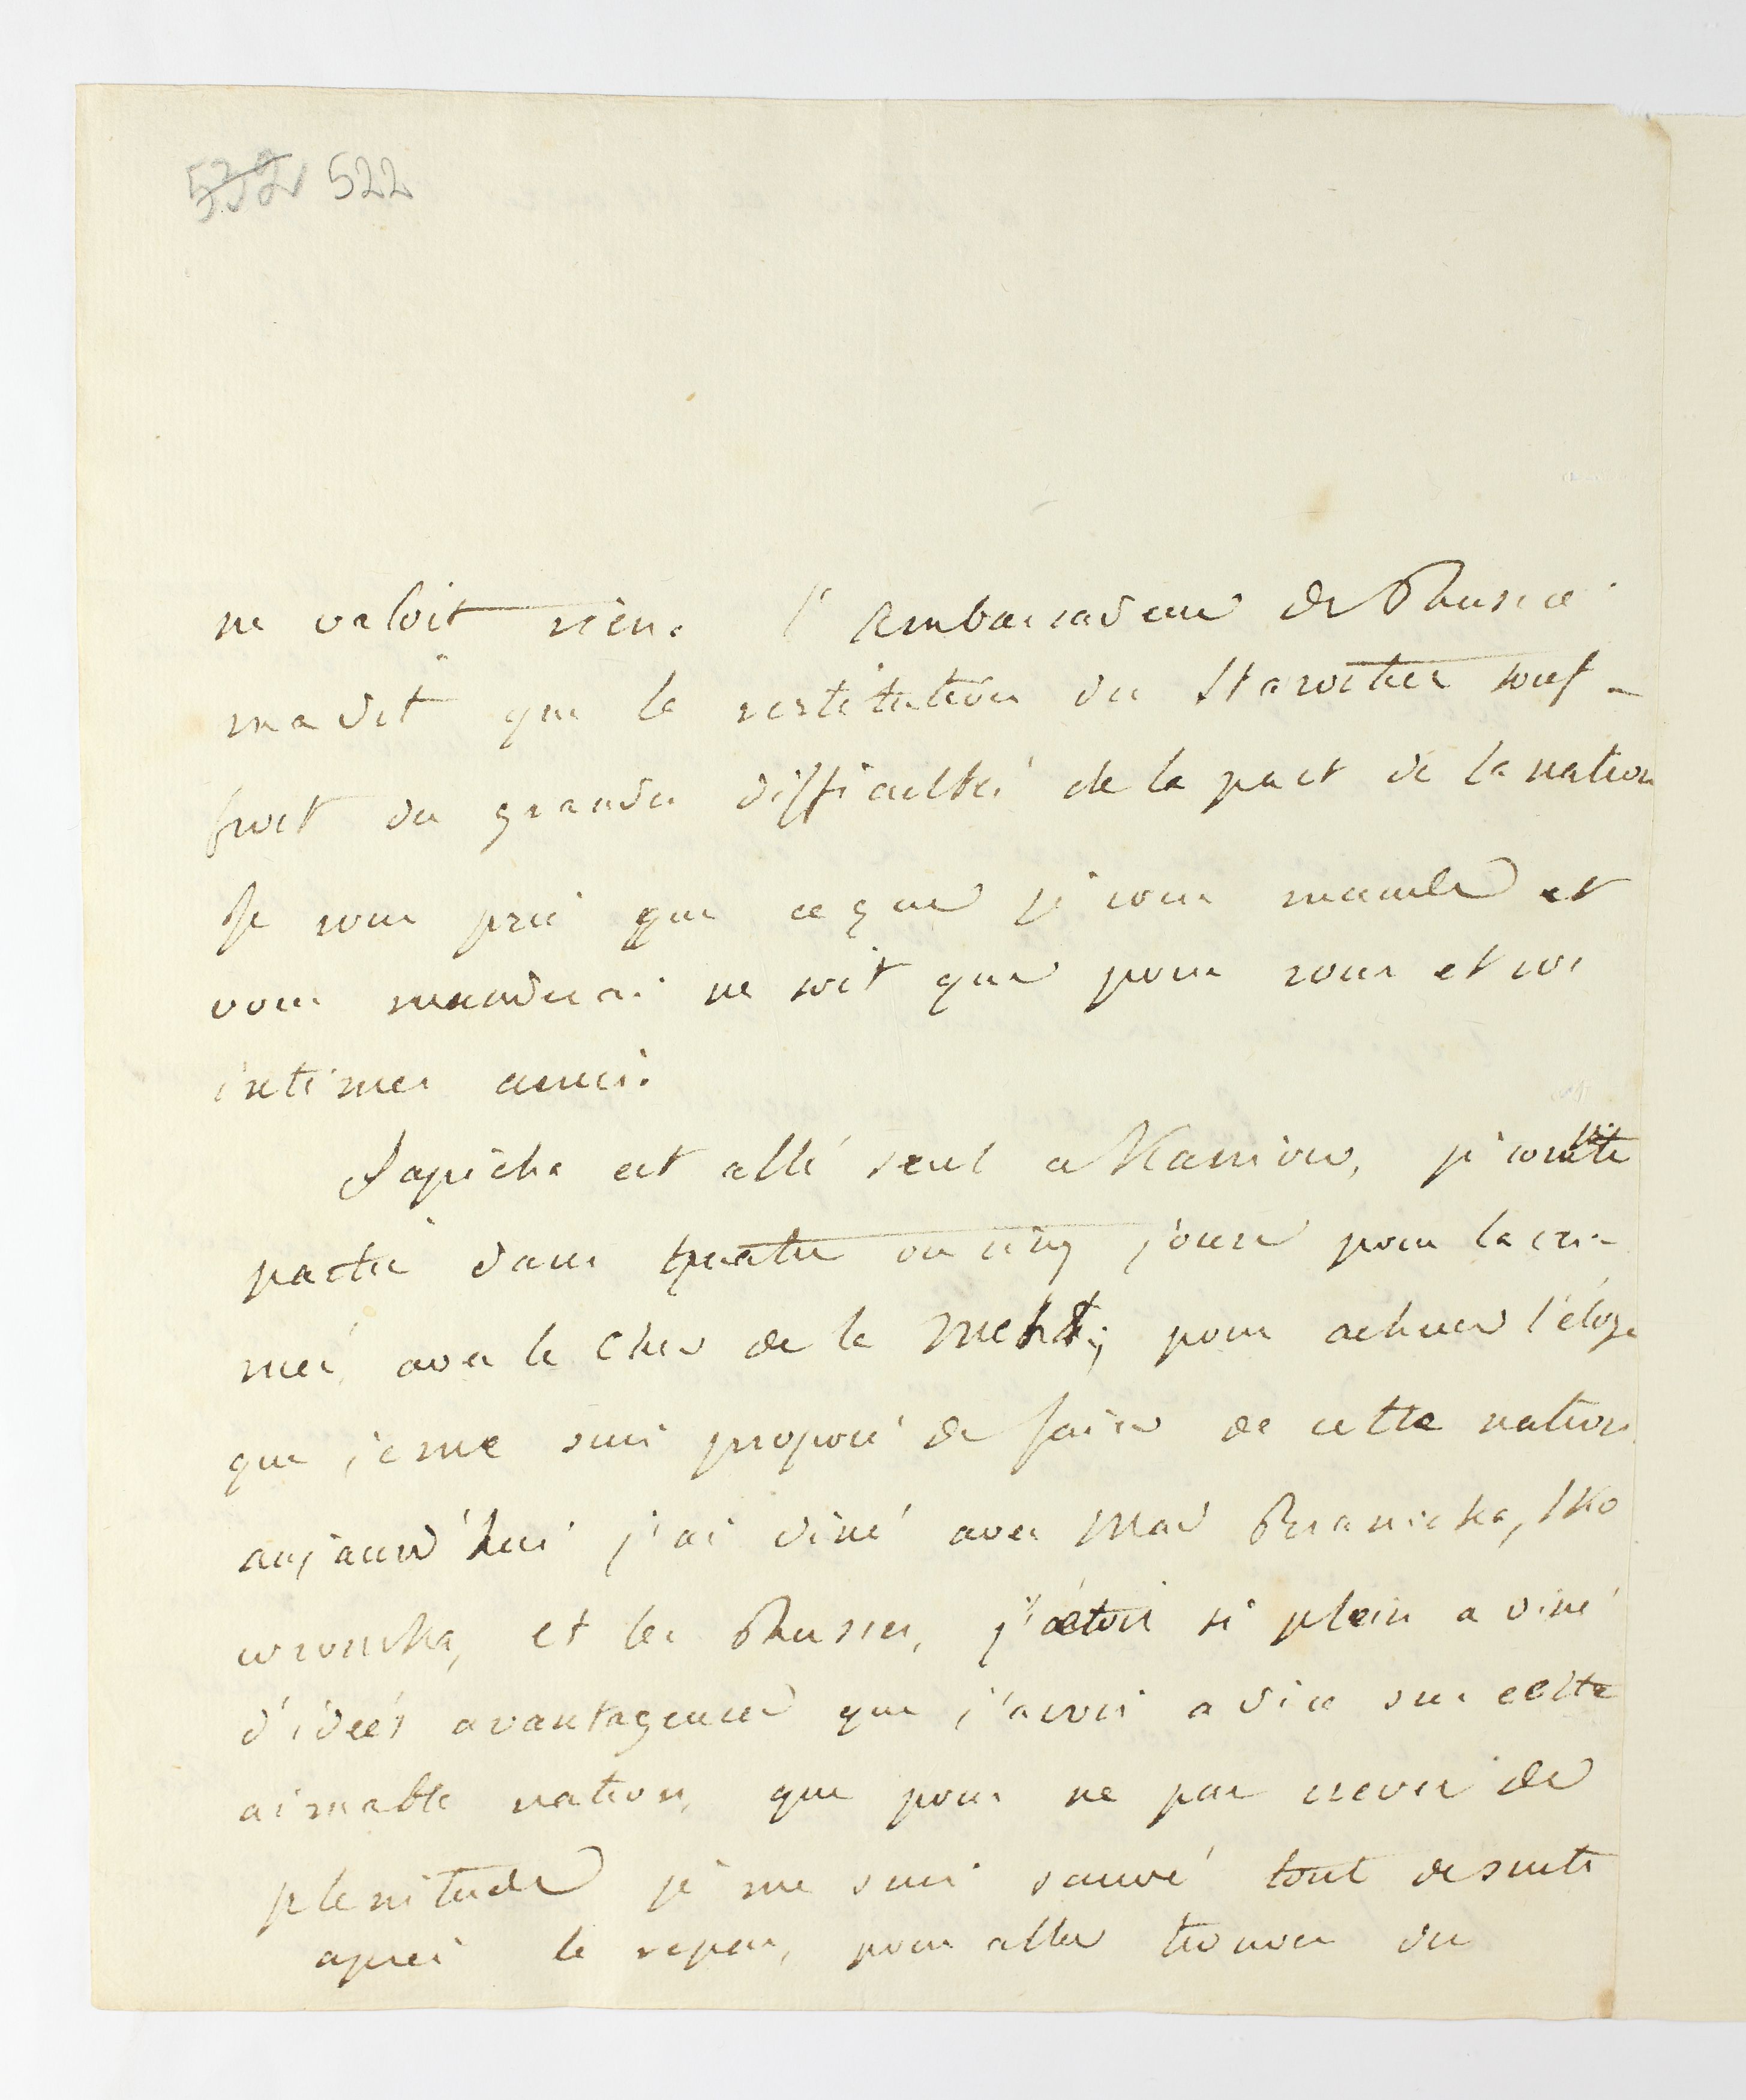 532 522
ne valoit rien. l'Ambassadeur de Russie
m'a dit que la restitution des Starosties souf-
froit des grandes difficultés de la part de la nation
Je vous prie que ce que je vous mande et
vous manderai ne soit que pour vous et vos
intimes amis.
Sapieha est allé seul a Kaniow, je compte
partir dans quatre ou cinq jours pour la Cri-
mée avec le Cher de la pour achever l'éloge
que je me suis proposé de faire de cette nation
aujourd'hui j'ai diné avec Mad Branicka, Sko
wronska, et les Russes, j'étois si plein a diné
d'idées avantageuses que j'avois a dire sur cette
aimable nation, que pour ne pas crever de
plenitude je me suis sauvé tout de suite
après le repas, pour aller trouver des